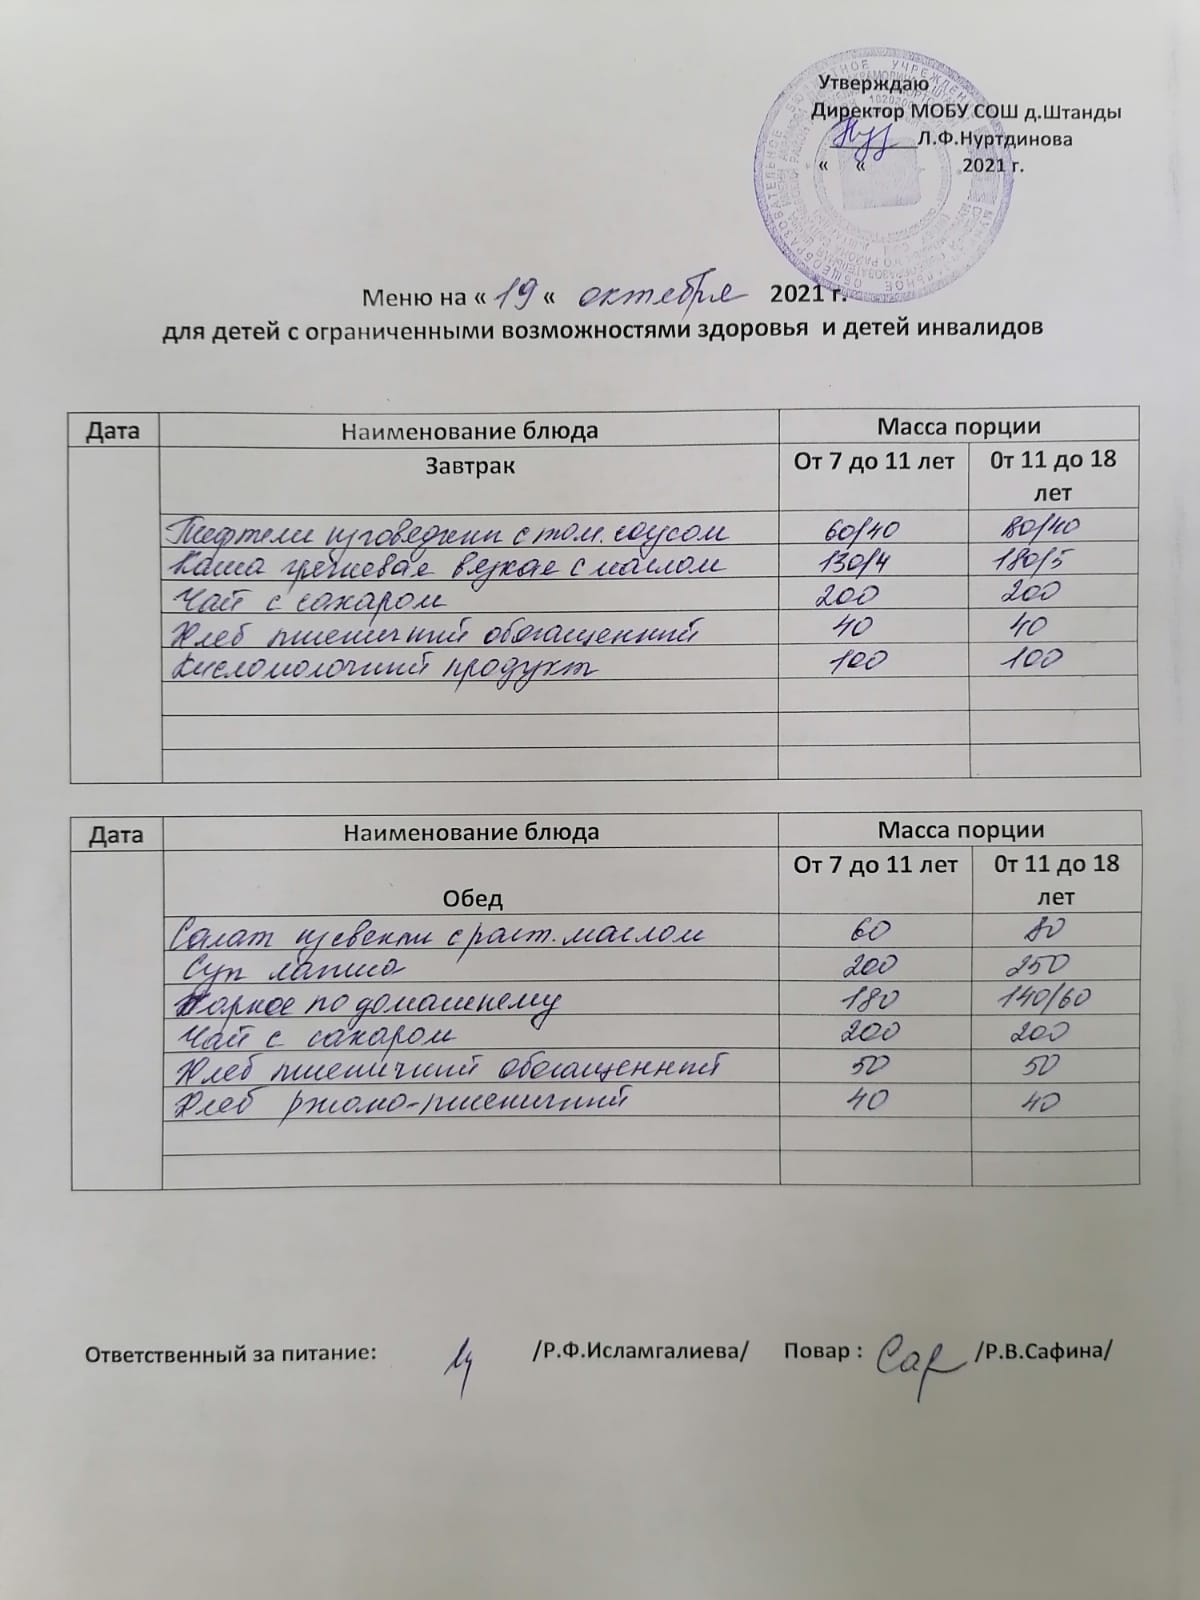 Утверждаю
Директор МОБУ СОШ д.Штанды
Л.Ф.Нуртдинова
« « 2021 г.
Меню на « 19 « октября 2021 г.
для детей с ограниченными возможностями здоровья и детей инвалидов
Дата Наименование блюда Масса порции
Завтрак От 7 до 11 лет 0т 11 до 18 лет
Тефтели из говядини с том. соусом 60/40 80/40
Каша гречневая вязкая с маслом 130/4 180/5
Чай с сахаром 200 200
Хлеб пшеничний обогащенний 40 40
Кисломолочний продукт 100 100
Дата Наименование блюда Масса порции
Обед От 7 до 11 лет 0т 11 до 18 лет
Салат из свекли с раст. маслом 60 80
Суп лапша 200 250
Жаркое по домашнему 180 140/60
Чай с сахаром 200 200
Хлеб пшеничний обогащенний 50 50
Хлеб ржано-пшеничний 40 40
Ответственный за питание: /Р.Ф.Исламгалиева/ Повар : Саф /Р.В.Сафина/